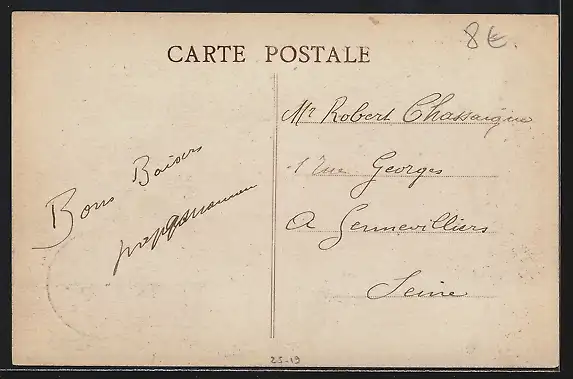 CARTE POSTALE
8€.
Bons Baisers
Mr Robert Chassaigne
1 rue Georges
A Gennevilliers
Seine
25-19